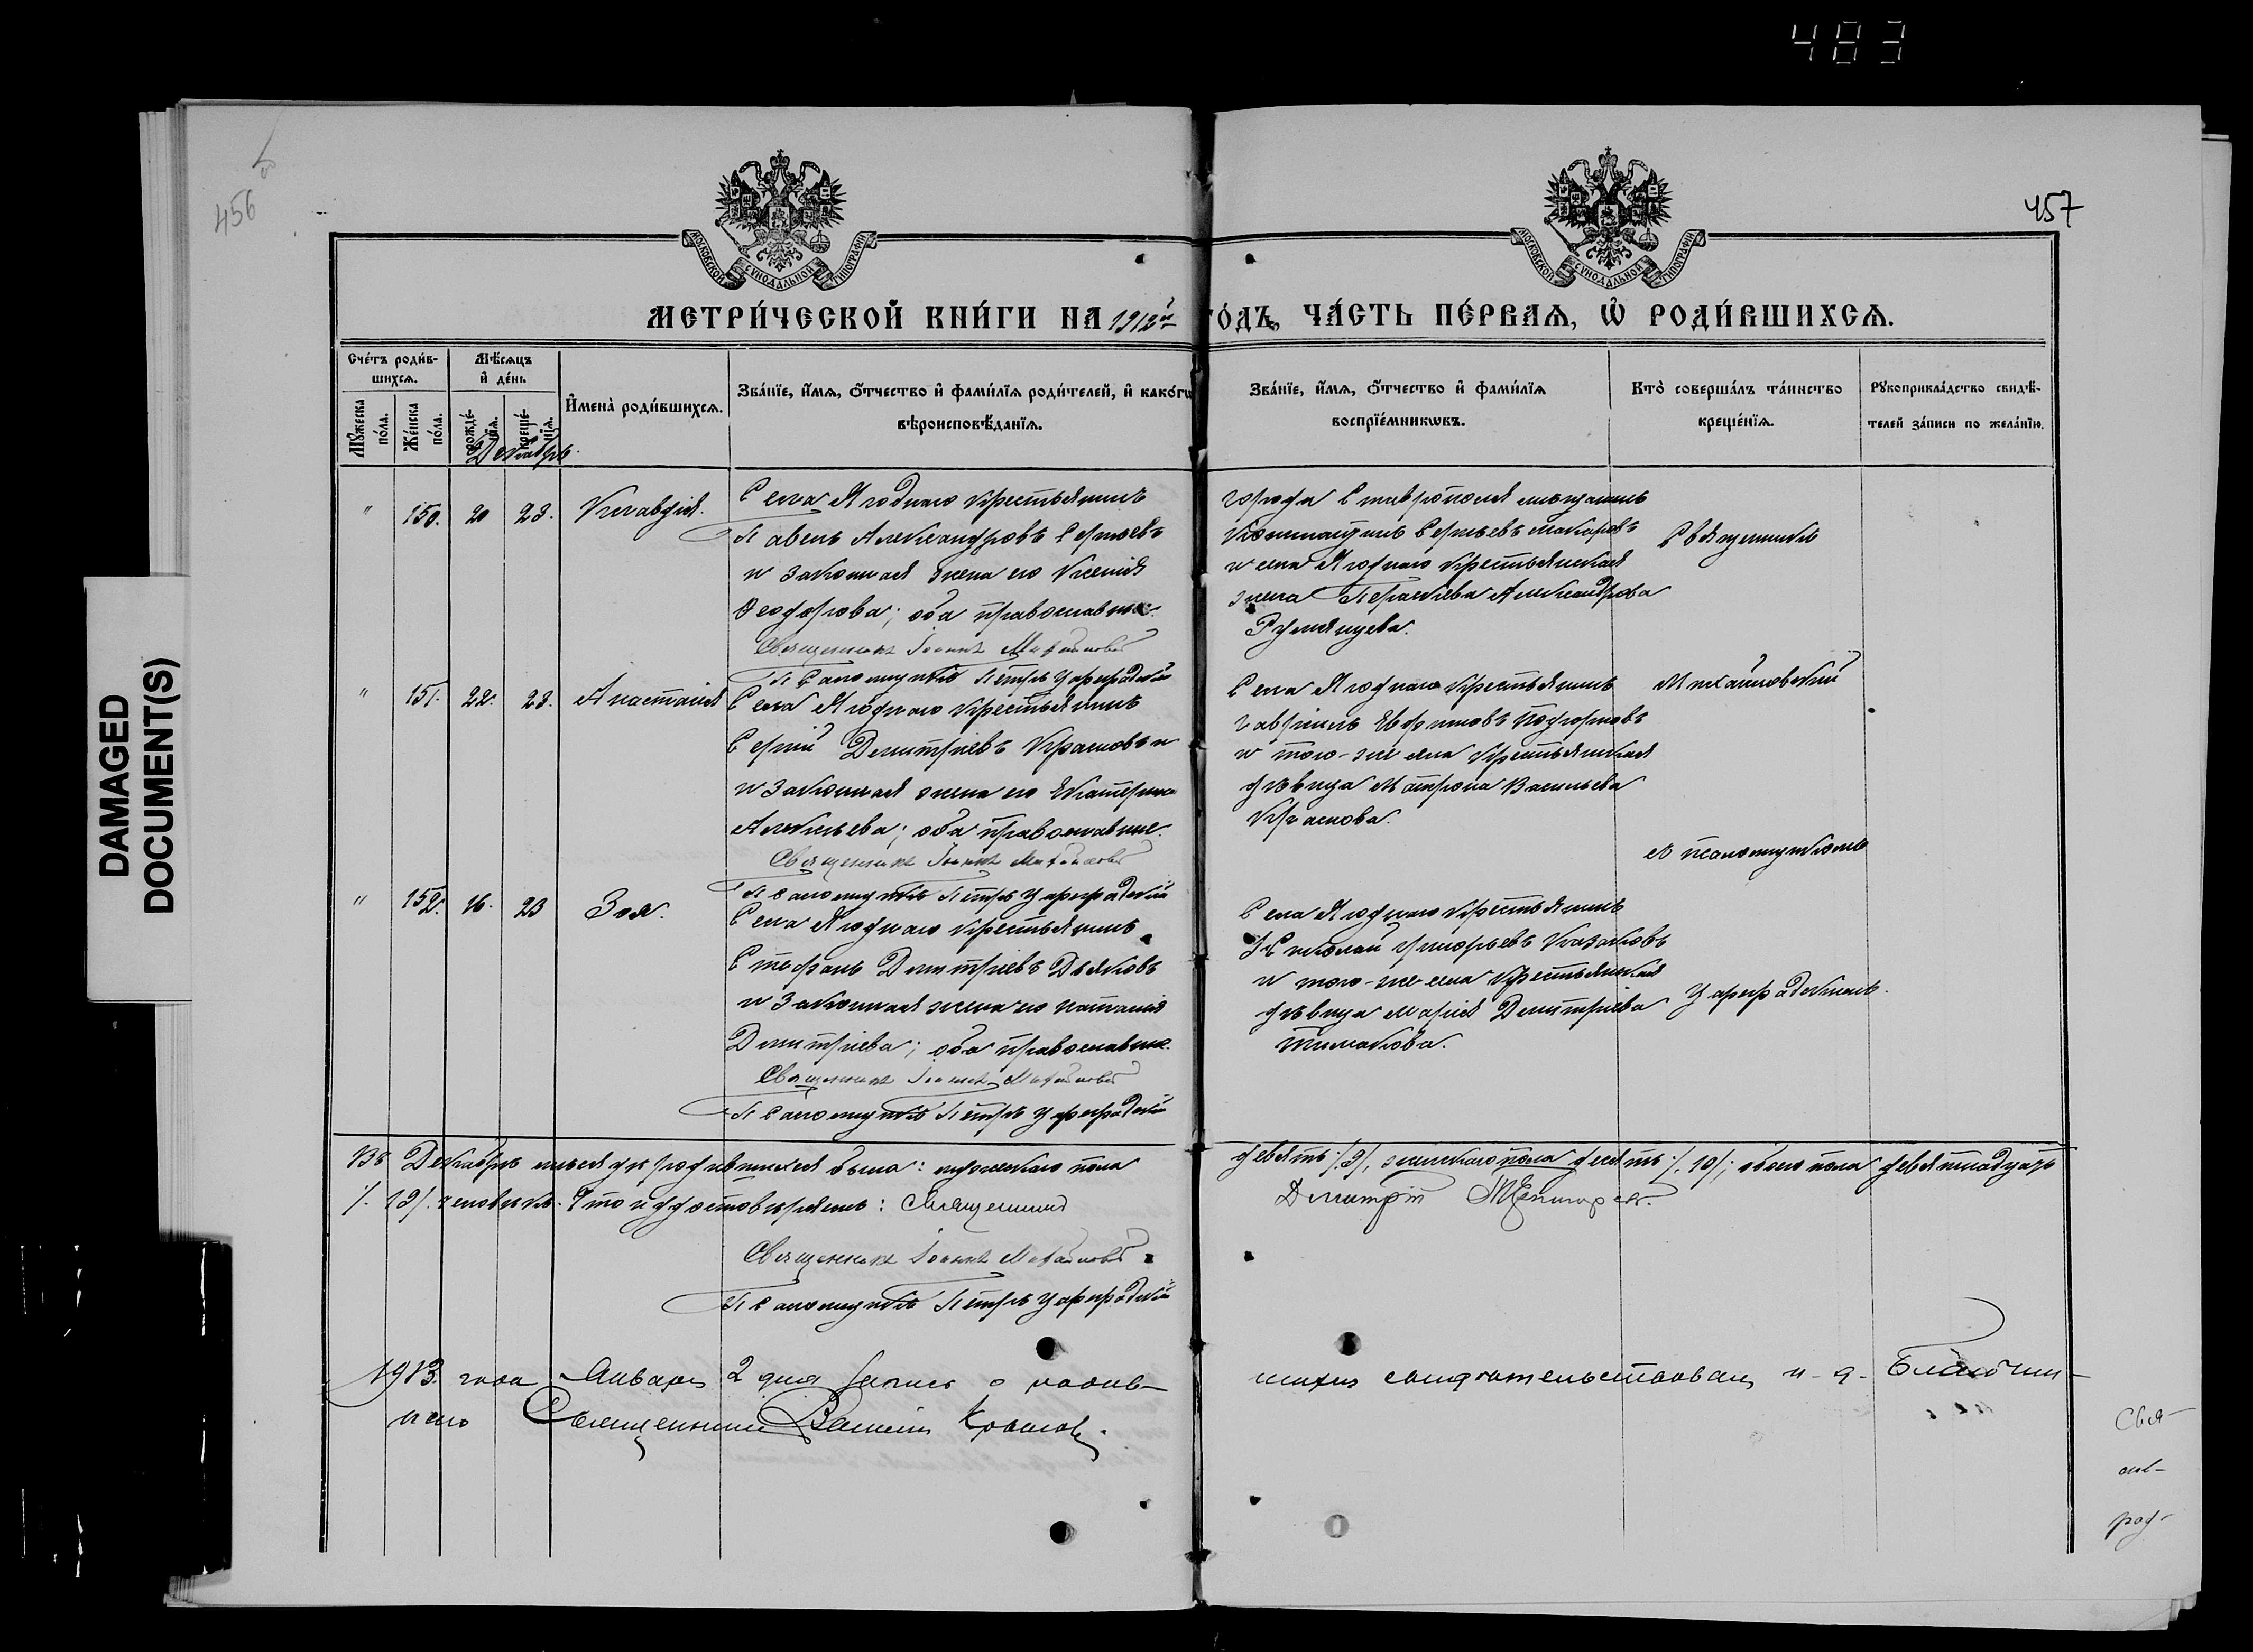 483
456
457
DAMAGED
DOCUMENT(S)
МОСКОВСКОЙ СѴНОДАЛЬНОЙ ТИПОГРАФІИ
МОСКОВСКОЙ СѴНОДАЛЬНОЙ ТИПОГРАФІИ
МЕТРИ́ЧЕСКОЙ КНИ́ГИ НА 1912й ГО́ДЪ, ЧА́СТЬ ПЕ́РВАѦ, Ѡ҆ РОДИ́ВШИХСѦ.
Сче́тъ роди́в-
шихсѧ.
Мꙋ́жеска
по́ла.
Же́нска
по́ла.
Мѣ́сѧцъ
и҆ де́нь
рожде́-
нїѧ.
креще́-
нїѧ.
И҆мена̀ роди́вшихсѧ.
Зва́нїе, и҆́мѧ, ѻ҆́тчество и҆ фами́лїѧ роди́телей, и҆ како́гѡ
вѣроисповѣ́данїѧ.
Зва́нїе, и҆́мѧ, ѻ҆́тчество и҆ фами́лїѧ
воспрїе́мникѡвъ.
Кто̀ соверша́лъ та́инство
креще́нїѧ.
Рꙋкоприкла́дство свидѣ́-
телей за́писи по жела́нїю.
Декабрь
" 150. 20 23. Клавдія.
Села Ягоднаго крестьянинъ
Павелъ Александровъ Сергеевъ
и законная жена его Ксенія
Феодорова; оба православные.
Священникъ Іоаннъ Михайловскій
Псаломщикъ Петръ Цареградскій
города Ставрополя мещанинъ
Константинъ Сергеевъ Макаровъ
и села Ягоднаго крестьянская
жена Параскева Александрова
Румянцева.
Священникъ
" 151. 22. 23. Анастасія
Села Ягоднаго крестьянинъ
Сергій Димитріевъ Красновъ и
и законная жена его Екатерина
Алексеева; оба православные.
Священникъ Іоаннъ Михайловскій
Псаломщикъ Петръ Цареградскій
Села Ягоднаго крестьянинъ
Гавріилъ Подгорновъ
и того-же села крестьянская
девица Матрона Васильева
Краснова.
Михайловскій
съ псаломщикомъ
" 152. 16. 23 Зоя.
Села Ягоднаго крестьянинъ
Стефанъ Димитріевъ Дьяковъ
и законная жена его Наталія
Димитріева; оба православные.
Священникъ Іоаннъ Михайловскій
Псаломщикъ Петръ Цареградскій
Села Ягоднаго крестьянинъ
Николай Григорьевъ Казаковъ
и того-же села крестьянская
девица Марія Димитріева
Тимакова.
Цареградскимъ.
Въ Декабре месяце родившихся было: мужескаго пола
девять /.9/, женскаго пола десять /.10/; обоего пола девятнадцать
/.19/. человекъ. Что и удостоверяемъ: Священникъ
Димитрій
Священникъ Іоаннъ Михайловскій
Псаломщикъ Петръ Цареградскій
1913. года Января 2 дня запись о родив-
шихся свидетельствовалъ и. д. Благочин-
наго Священникъ Василій Крылов.
Свя-
рад-